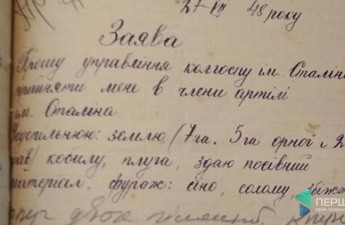 27-VII 48 року
Заява
Прошу управління колгоспу ім. Сталіна
прийняти мене в члени артілі
ім. Сталіна.
Усуспільнюю: землю (7 га. 5 га орної і 2
кобилу, плуга, здаю посівний
матеріал, фураж: сіно, солому, збіжжя
ПЕРШ